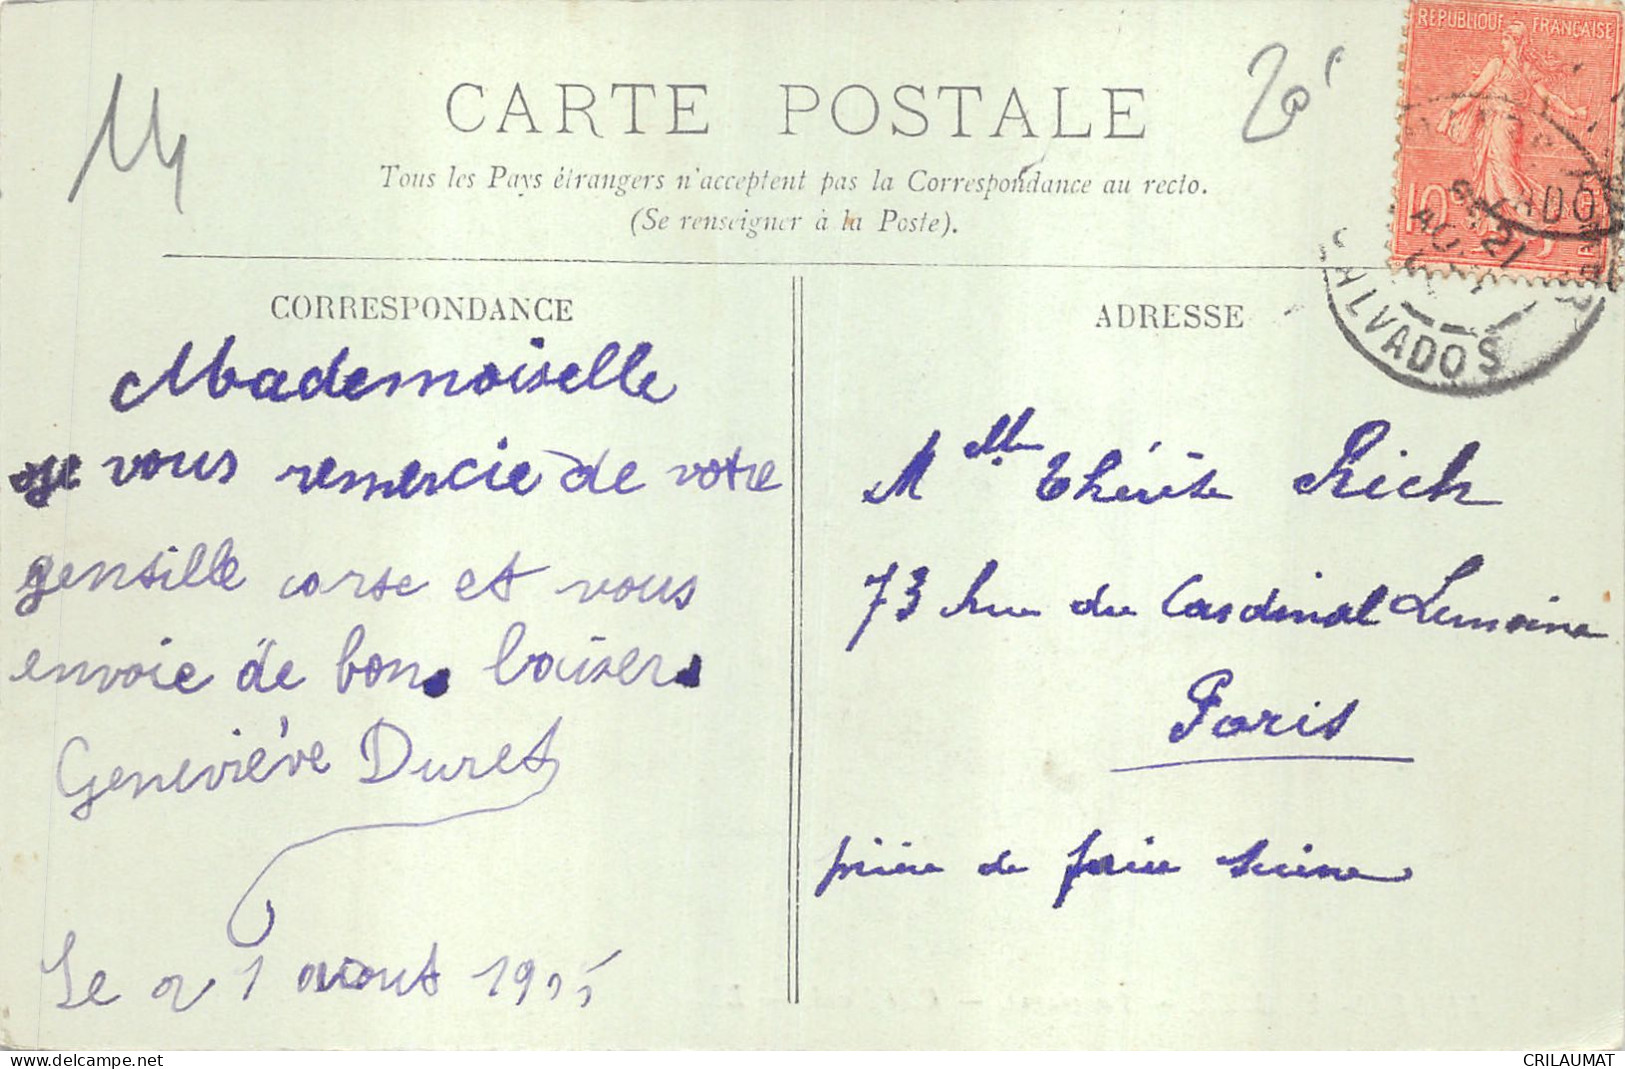 14
20f
RÉPUBLIQUE FRANÇAISE
10
CARTE POSTALE
Tous les Pays étrangers n'acceptent pas la Correspondance au recto.
(Se renseigner à la Poste).
21
CALVADOS
CORRESPONDANCE
Mademoiselle
je vous remercie de votre
gentille carte et vous
envoie de bons baisers
Geneviève Duret
Le 21 aout 1905
ADRESSE
Melle Thérèse Rich
73 Rue du Cardinal Lemoine
Paris
prière de faire suivre
delcampe.net
CRILAUMAT